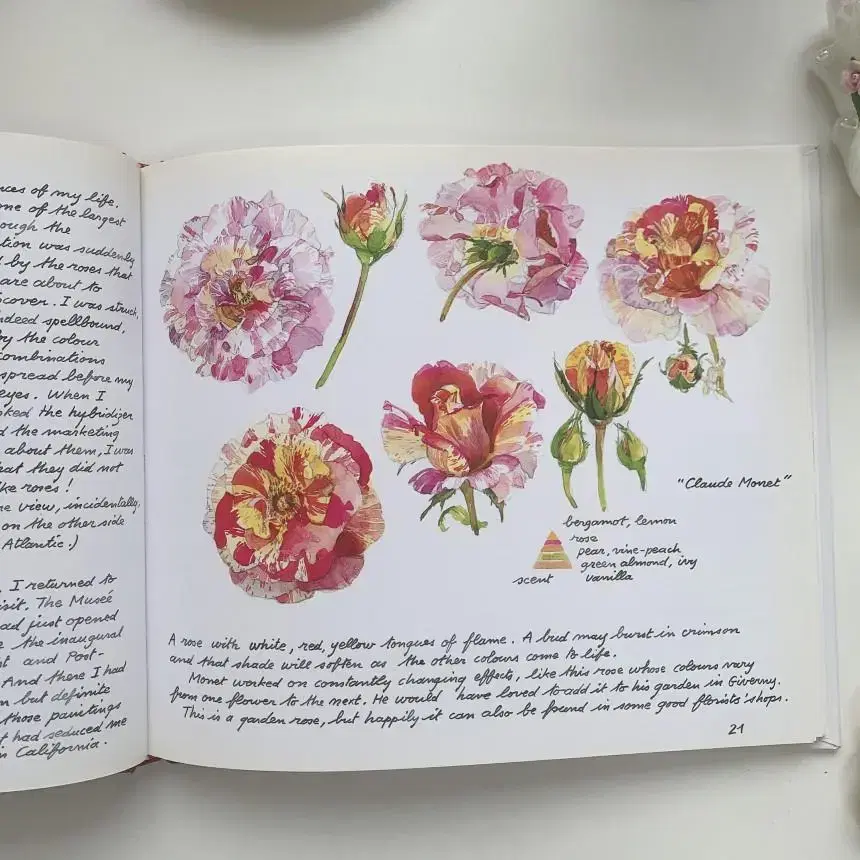 ces of my life.
one of the largest
ough the
tion was suddenly
by the roses that
are about to
cover. I was struck,
ndeed spellbound,
by the colour
combinations
spread before my
eyes. When I
ked the hybridizer
d the marketing
about them, I was
hat they did not
ke roses!
e view, incidentally,
on the other side
Atlantic.)
I returned to
isit. The Museé
ad just opened
the inaugural
t and Post-
And there I had
n but definite
those paintings
t had seduced me
in California.
"Claude Monet"
bergamot, lemon
rose
pear, vine-peach
green almond, ivy
scent vanilla
A rose with white, red, yellow tongues of flame. A bud may burst in crimson
and that shade will soften as the other colours come to life.
Monet worked on constantly changing effects, like this rose whose colours vary
from one flower to the next. He would have loved to add it to his garden in Giverny.
This is a garden rose, but happily it can also be found in some good florists' shops.
21